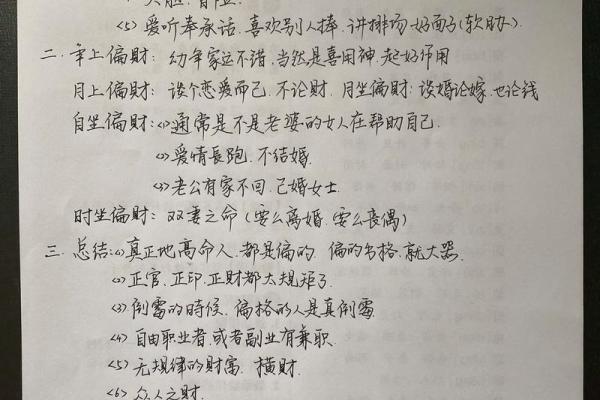 大胆、冒险.
<5> 爱听奉承话、喜欢别人捧、讲排场、好面子(软肋).
二. 年上偏财: 幼年家运不错、当然是喜用神、起好作用
月上偏财: 谈个恋爱而已、不论财. 月坐偏财: 谈婚论嫁、也论钱
自坐偏财: <1> 通常是不是老婆的女人在帮助自己.
<2> 爱情長跑、不结婚.
<3> 老公有家不回、已婚女士.
时坐偏财: 双妻之命 (要么离婚、要么丧偶)
三. 总结: <1> 真正地高命人、都是偏的. 偏的出格、就大器.
<2> 正官、正印、正财都太规矩了
<3> 倒霉的時候、偏格的人是真倒霉
<4> 自由职业者、或者副业有兼职.
<5> 无规律的財富、横财.
<6> 众人之财.